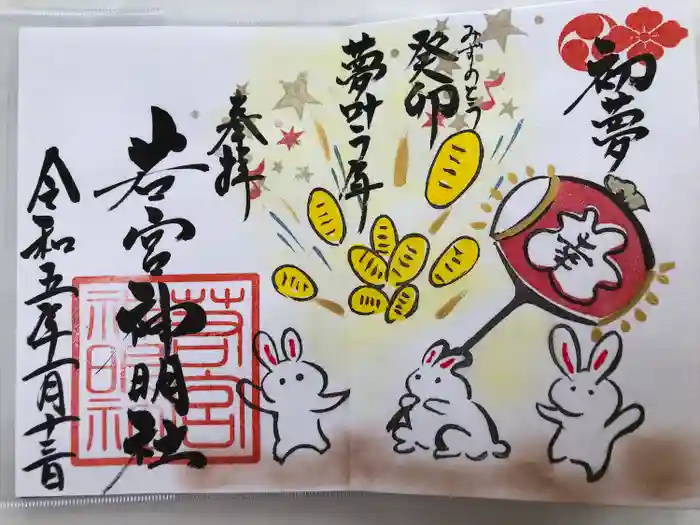 初夢
みずのとう
癸卯
夢叶う年
奉拝
若宮神明社
令和五年一月十三日
若宮
神明社